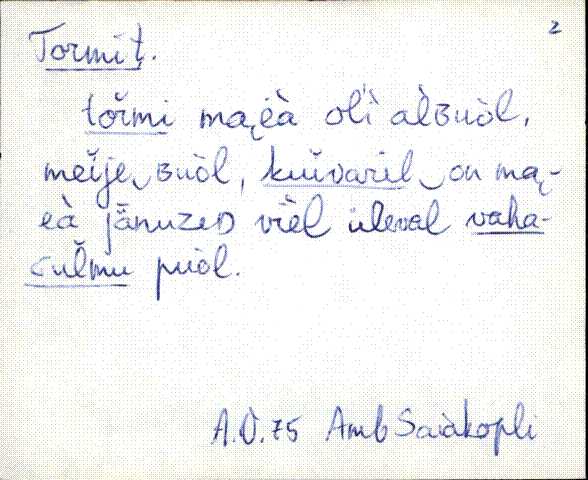 2
Tormit.
tořmi mаɛ̀à oľì alʙuòl,
meĭje ʙuòl, kuĭvaril on ma-
eà jänuzᴇᴅ vìel üleval vaha-
cuľmu puòl.
A.Ü.75 Amb Saiàkopli